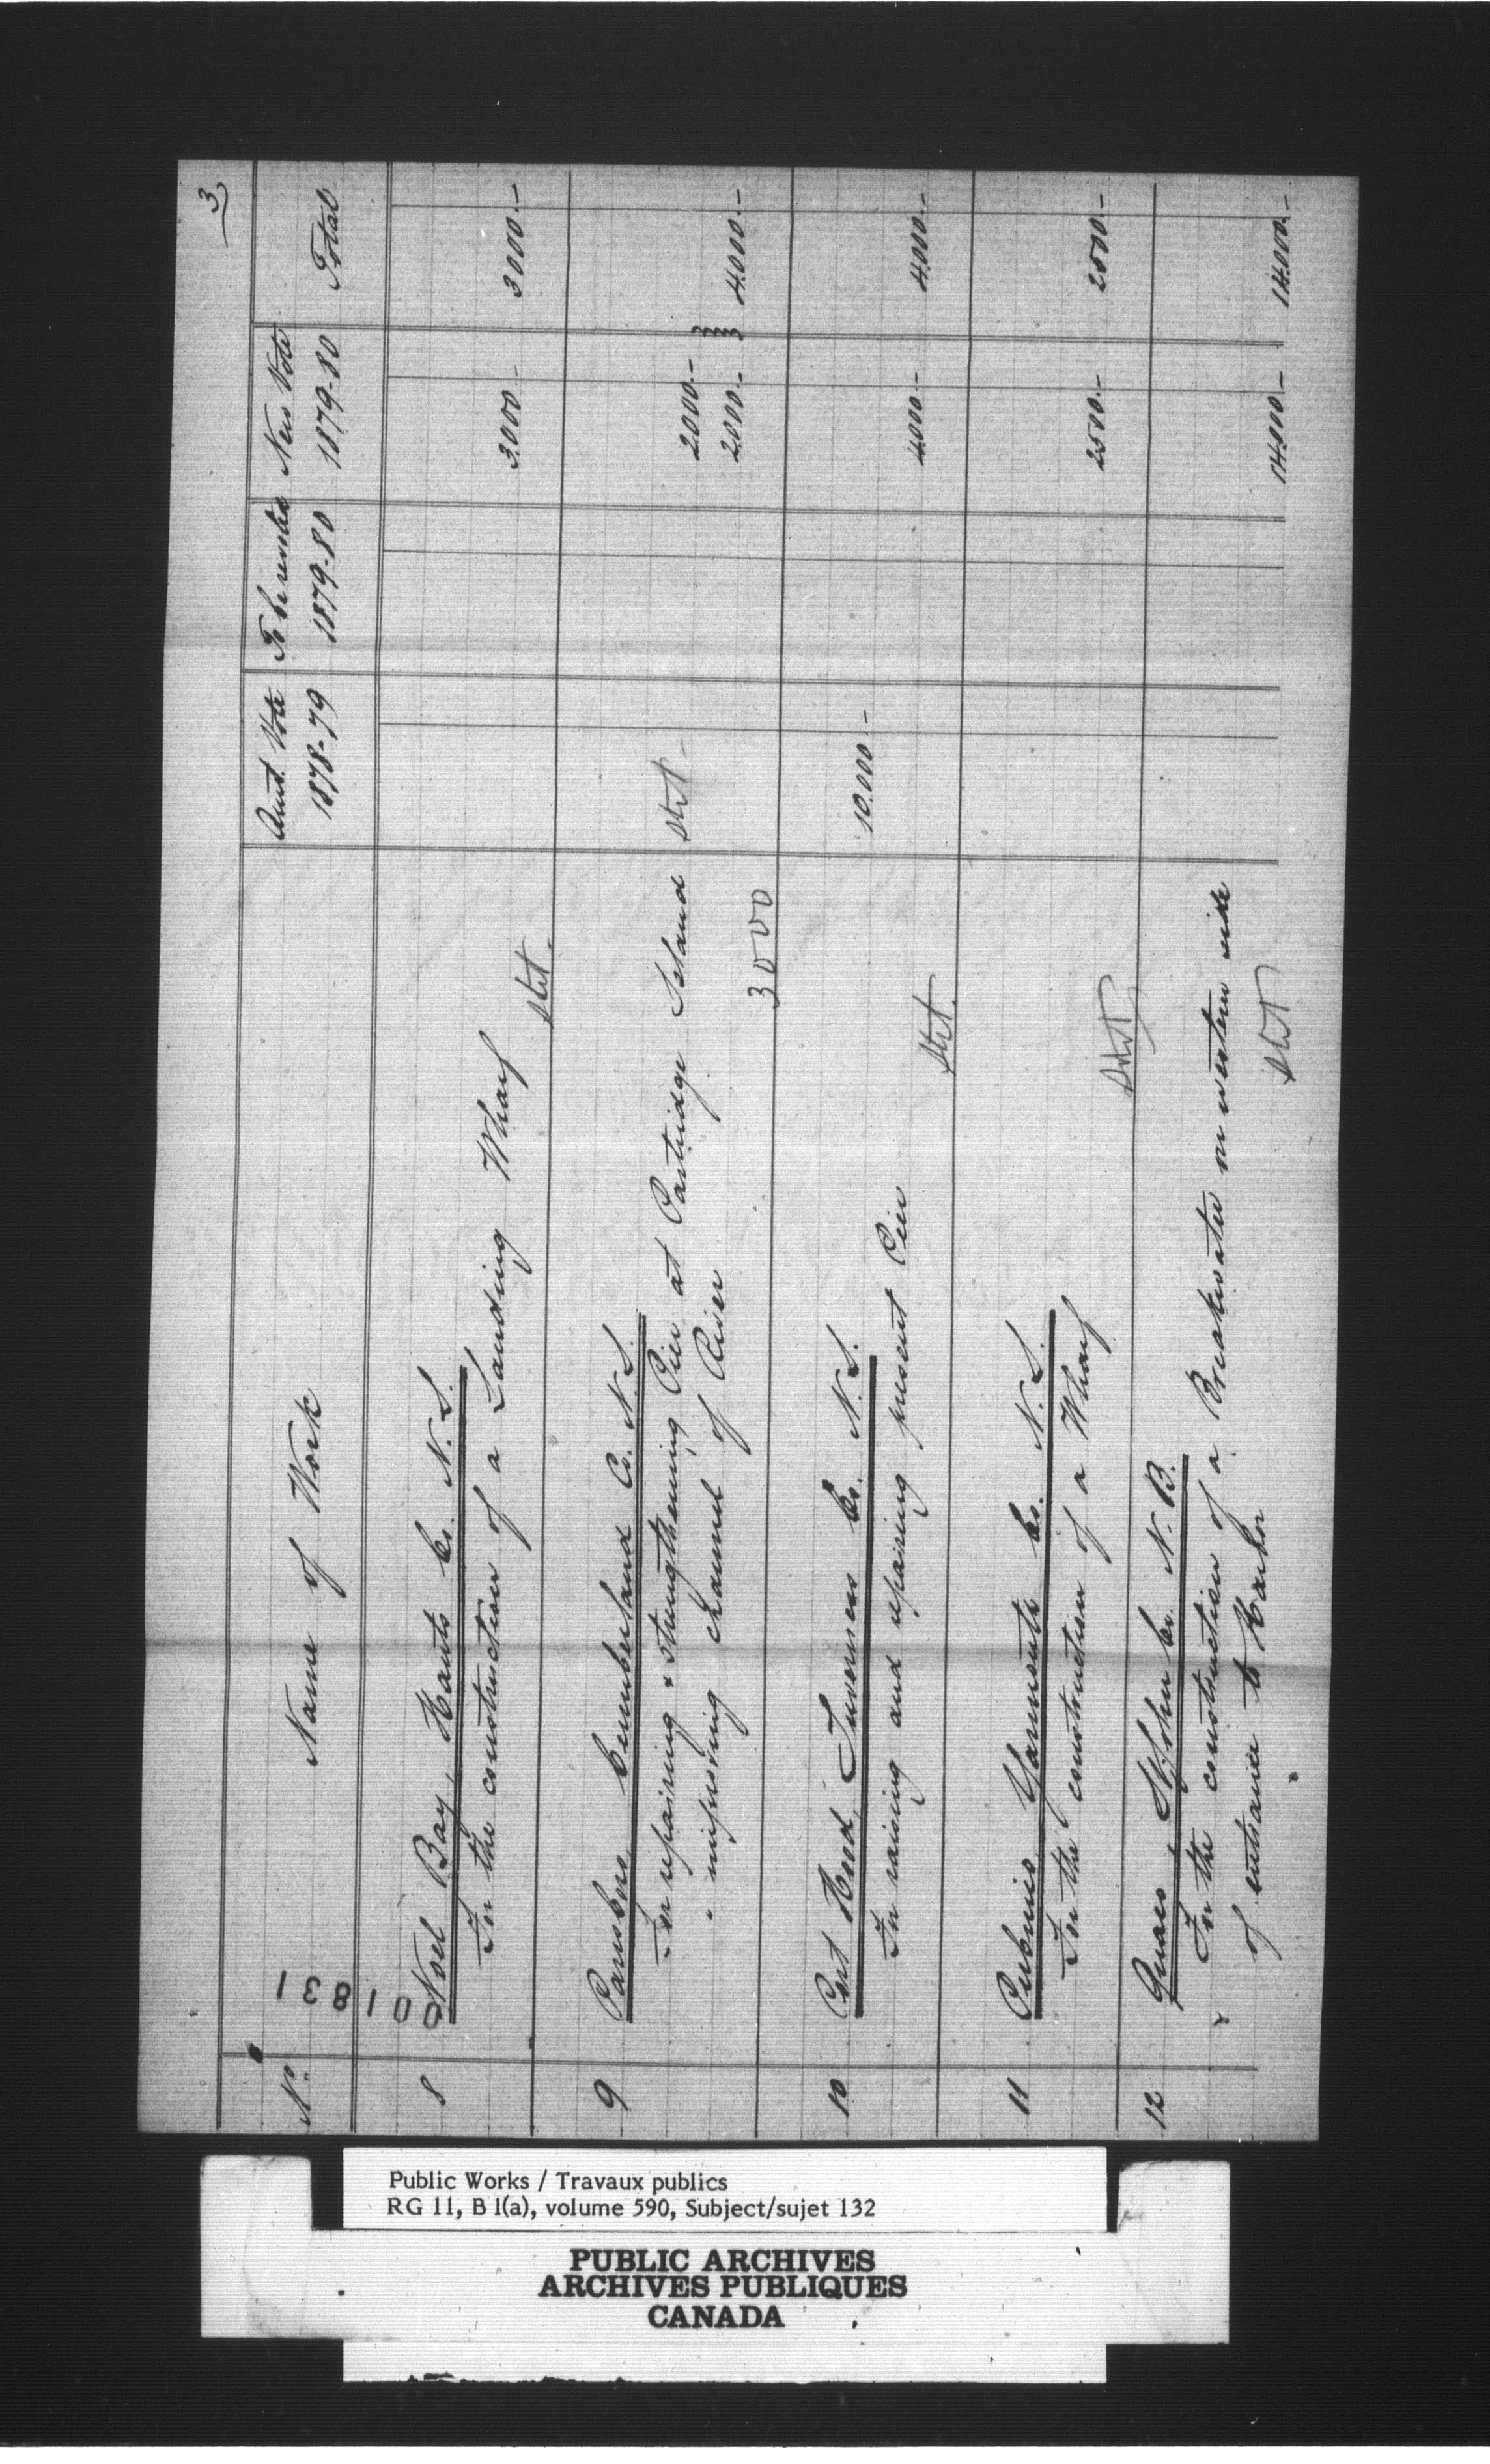 3
No. Name of Work Amt. Vote To be revoted New Vote Total
1878-79 1879-80 1879-80
001831
8 Noel Bay, Hants Co. N.S.
For the construction of a Landing Wharf 3000.- 3000.-
9 Parrsboro, Cumberland Co. N.S.
For repairing & strengthening Pier at Partridge Island 2000.-
" improving channel of River 2000.- 4000.-
3000
10 Port Hood, Inverness Co. N.S. 10.000-
For raising and repairing present Pier 4000.- 4000.-
11 Pubnico, Yarmouth Co. N.S.
For the construction of a Wharf 2500.- 2500.-
12 Quaco, St. John Co. N.B.
For the construction of a Breakwater on western side
of entrance to Harbor 14.000.- 14.000.-
Public Works / Travaux publics
RG 11, B 1(a), volume 590, Subject/sujet 132
PUBLIC ARCHIVES
ARCHIVES PUBLIQUES
CANADA